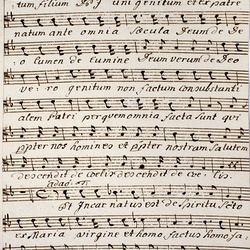 tum, filium Dei uni genitum et ex patre
natum ante omnia Sæcula Deum de De
o Lumen de Lumine Deum verum de Deo
ve: :ro genitum non factum consubstanti
alem Patri per quem omnia facta sunt qui
ppter nos homines et ppter nostram salutem
descendit de coelis descendit de coe: :lis.
adag:
Et Incarnatus est de Spiritu Scto
ex Maria virgine et homo factus homo fa